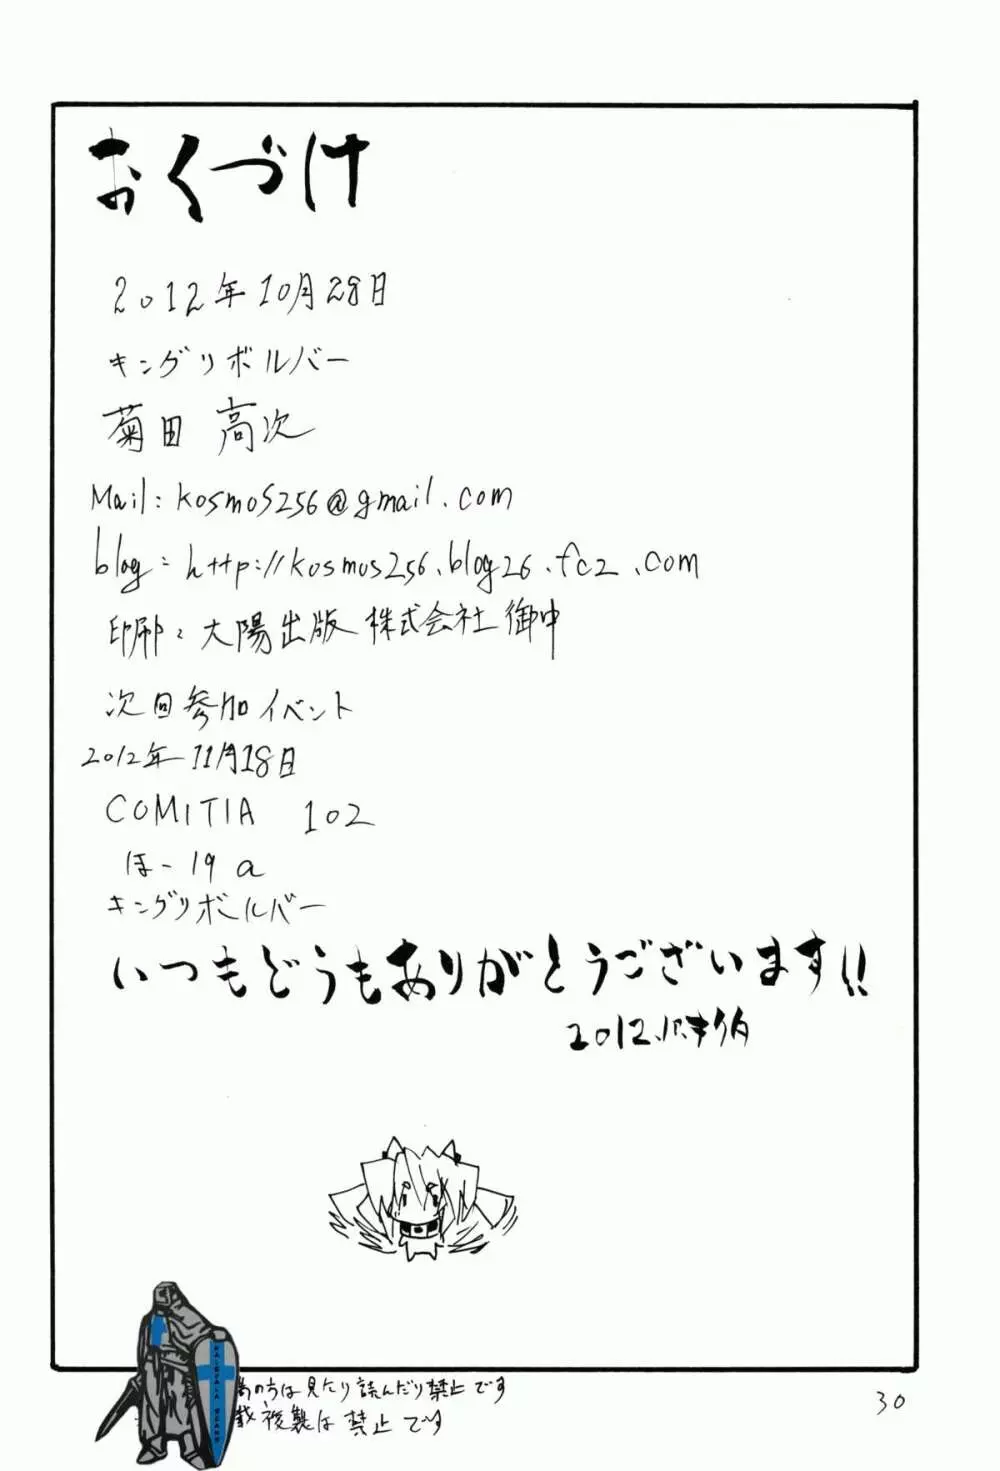 おくづけ
2012年10月28日
キングリボルバー
菊田 高次
Mail: kosmos256@gmail.com
blog: http://kosmos256.blog26.fc2.com
印刷: 大陽出版 株式会社 御中
次回参加イベント
2012年11月18日
COMITIA 102
ほ-19a
キングリボルバー
いつもどうもありがとうございます!!
2012.
の方は見たり読んだり禁止です
載複製は禁止です
30